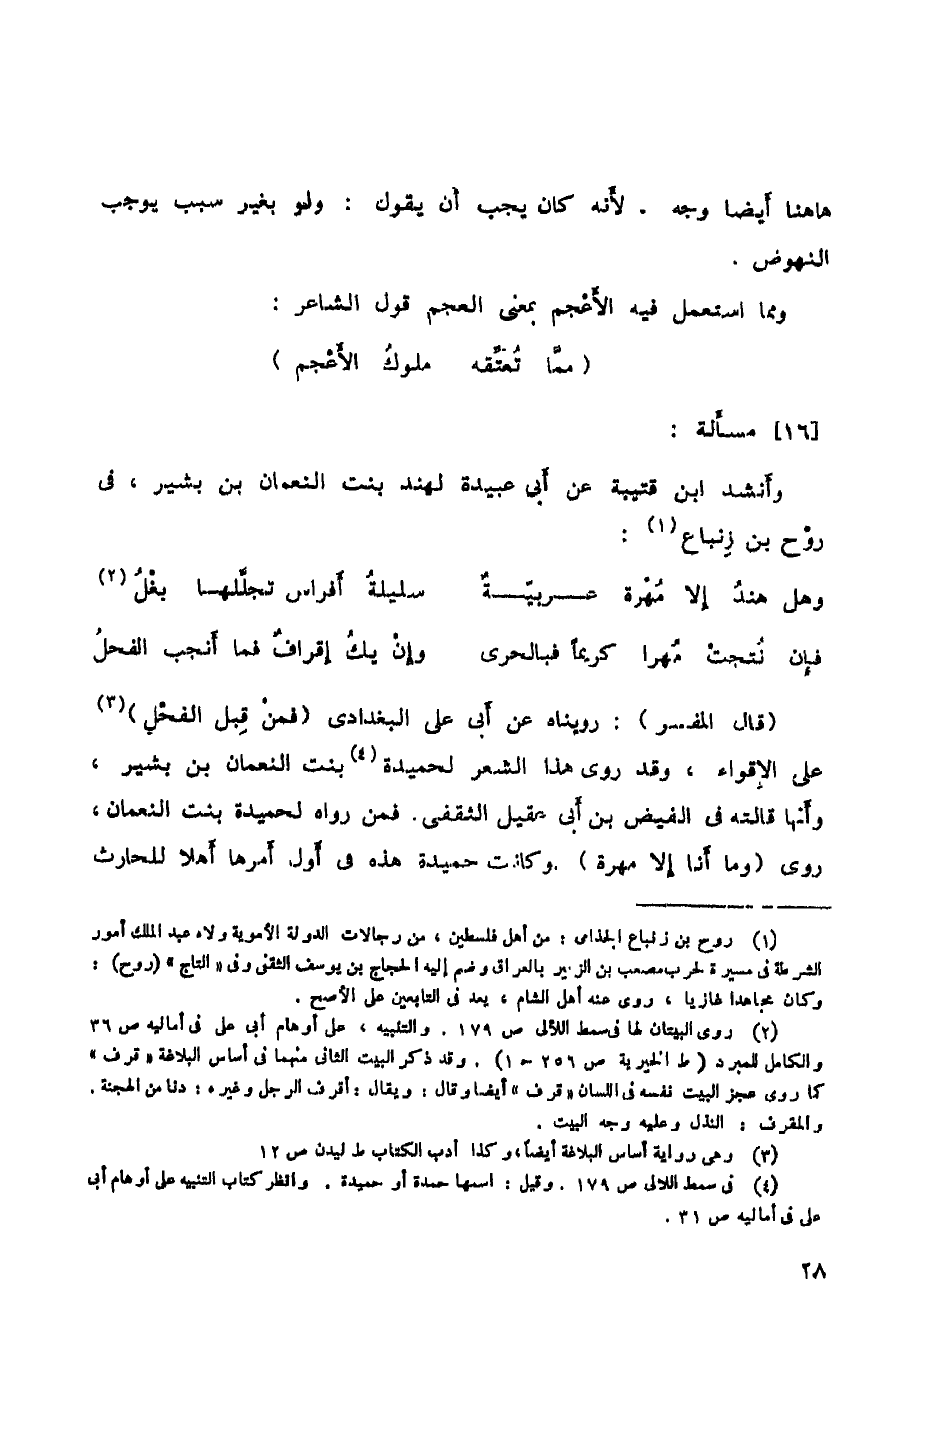 هاهنا أيضا وجه . لأنه كان يجب أن يقول : ولو بغير سبب يوجب
النهوض .
ومما استعمل فيه الأَعْجم بمعنى العجم قول الشاعر :
( ممَّا تُعَتِّقه ملوكُ الأَعْجم )
[١٦] مسأَلة :
وأَنشد ابن قتيبة عن أَبي عبيدة لهند بنت النعمان بن بشير ، فى
روْح بن زِنباع(١) :
وهل هندُ إلا مُهْرة عـــربيّــــةٌ سليلةُ أَفراس تجلَّلهـا بغْلُ(٢)
فإِن نُتجتْ مُهرا كريماً فبالحرى وإنْ يكُ إقرافٌ فما أَنجب الفحلُ
(قال المفسر ) : رويناه عن أَبى على البغدادى (فمنْ قِبل الفحْلِ)(٣)
على الإِقواء ، وقد روى هذا الشعر لحميدة(٤) بنت النعمان بن بشير ،
وأَنها قالته فى الفيض بن أَبى عقيل الثقفى . فمن رواه لحميدة بنت النعمان ،
روى (وما أَنا إلا مهرة ) .وكانت حميدة هذه فى أَول أَمرها أَهلا للحارث
(١) روح بن زنباع الجذامى : من أهل فلسطين ، من رجالات الدولة الأموية ولاه عبد الملك أمور
الشرطة فى مسيرة لحرب مصعب بن الزبير بالعراق وضم إليه الحجاج بن يوسف الثقفى وفى « التاج » (روح) :
وكان مجاهدا غازيا ، روى عنه أهل الشام ، يعد فى التابعين على الأصح .
(٢) روى البيتان لها فى سمط اللآلى ص ١٧٩ . والتنبيه ، على أوهام أبى على فى أماليه ص ٣٦
والكامل للمبرد ( ط الخيرية ص ٢٥٦ - ١) . وقد ذكر البيت الثانى منهما فى أساس البلاغة « قرف »
كما روى عجز البيت نفسه فى اللسان « قرف » أيضا وقال : ويقال : أقرف الرجل وغيره : دنا من الهجنة .
والمقرف : النذل وعليه وجه البيت .
(٣) وهى رواية أساس البلاغة أيضاً، وكذا أدب الكتاب ط ليدن ص ١٢
(٤) فى سمط اللالى ص ١٧٩ . وقيل : اسمها حمدة أو حميدة . وانظر كتاب التنبيه على أوهام أبى
على فى أماليه ص ٣١ .
٢٨